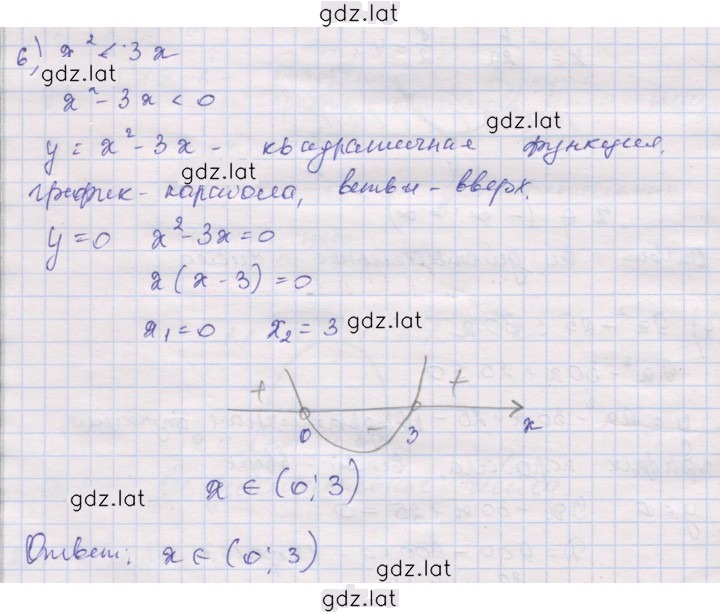 gdz.lat
6) x² < 3x
gdz.lat
x² - 3x < 0
gdz.lat
y = x² - 3x - квадратичная функция,
gdz.lat
график - парабола, ветви - вверх.
y = 0 x² - 3x = 0
x(x - 3) = 0
x₁ = 0 x₂ = 3 gdz.lat
+ - +
0 3 x
x ∈ (0; 3)
gdz.lat
Ответ: x ∈ (0; 3)
gdz.lat
gdz.lat